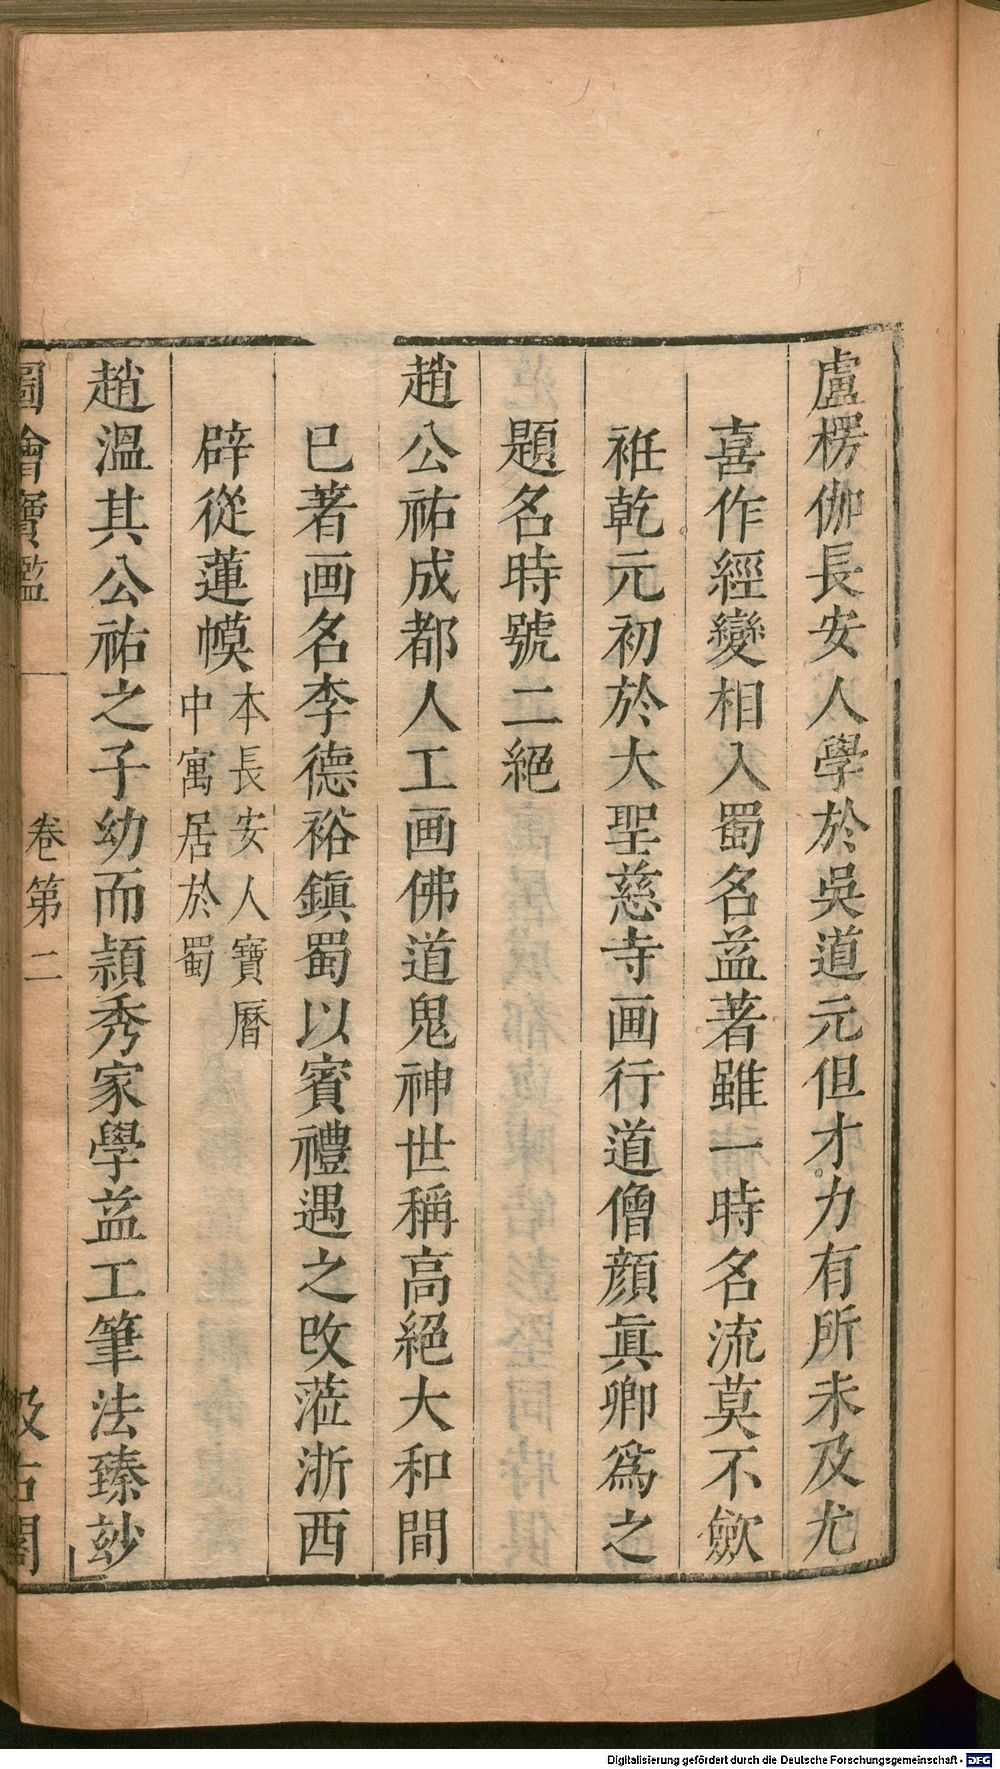 盧楞伽長安人學於吳道元但才力有所未及尤
喜作經變相入蜀名益著雖一時名流莫不歛
袵乾元初於大聖慈寺画行道僧顏眞卿爲之
題名時號二絕
趙公祐成都人工画佛道鬼神世稱高絕大和間
巳著画名李德裕鎮蜀以賓禮遇之改蒞浙西
辟從蓮幙
本長安人寶曆
中寓居於蜀
趙溫其公祐之子幼而頴秀家學益工筆法臻玅
圖繪寶鑑
卷第二
汲古閣
Digitalisierung gefördert durch die Deutsche Forschungsgemeinschaft - DFG